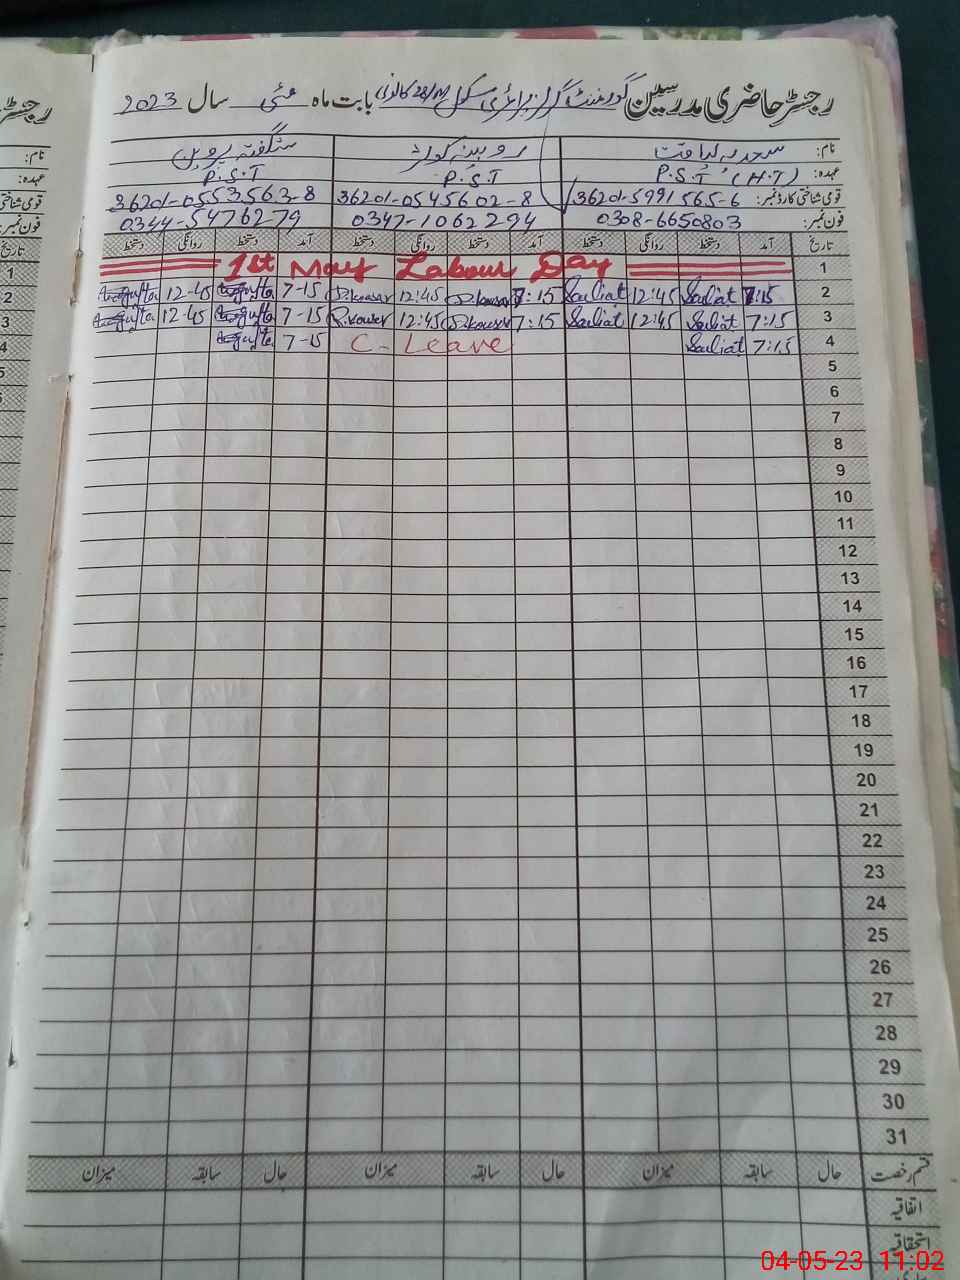 رجسٹر حاضری مدرسین گورنمنٹ گرلز پرائمری سکول 28/M کالونی بابت ماہ مئی سال 2023
نام: سعدیہ لیاقت روبینہ کوثر شگفتہ پروین
عہدہ: P.S.T (H.T) P.S.T P.S.T
قومی شناختی کارڈ نمبر: 36201-5991565-6 36201-0545602-8 36201-0553563-8
فون نمبر: 0308-6650803 0347-1062294 0344-5476279
تاریخ آمد دستخط روانگی دستخط آمد دستخط روانگی دستخط آمد دستخط روانگی دستخط
1 1st May Labour Day
2 7:15 12:45 7:15 R.kousar 12:45 R.kousar 7-15 12-45
3 7:15 12:45 7:15 R.kousar 12:45 R.kousar 7-15 12-45
4 7:15 C-Leave 7-15
5
6
7
8
9
10
11
12
13
14
15
16
17
18
19
20
21
22
23
24
25
26
27
28
29
30
31
قسم رخصت حال سابقہ میزان حال سابقہ میزان حال سابقہ میزان
اتفاقیہ
استحقاقیہ
04-05-23 11:02